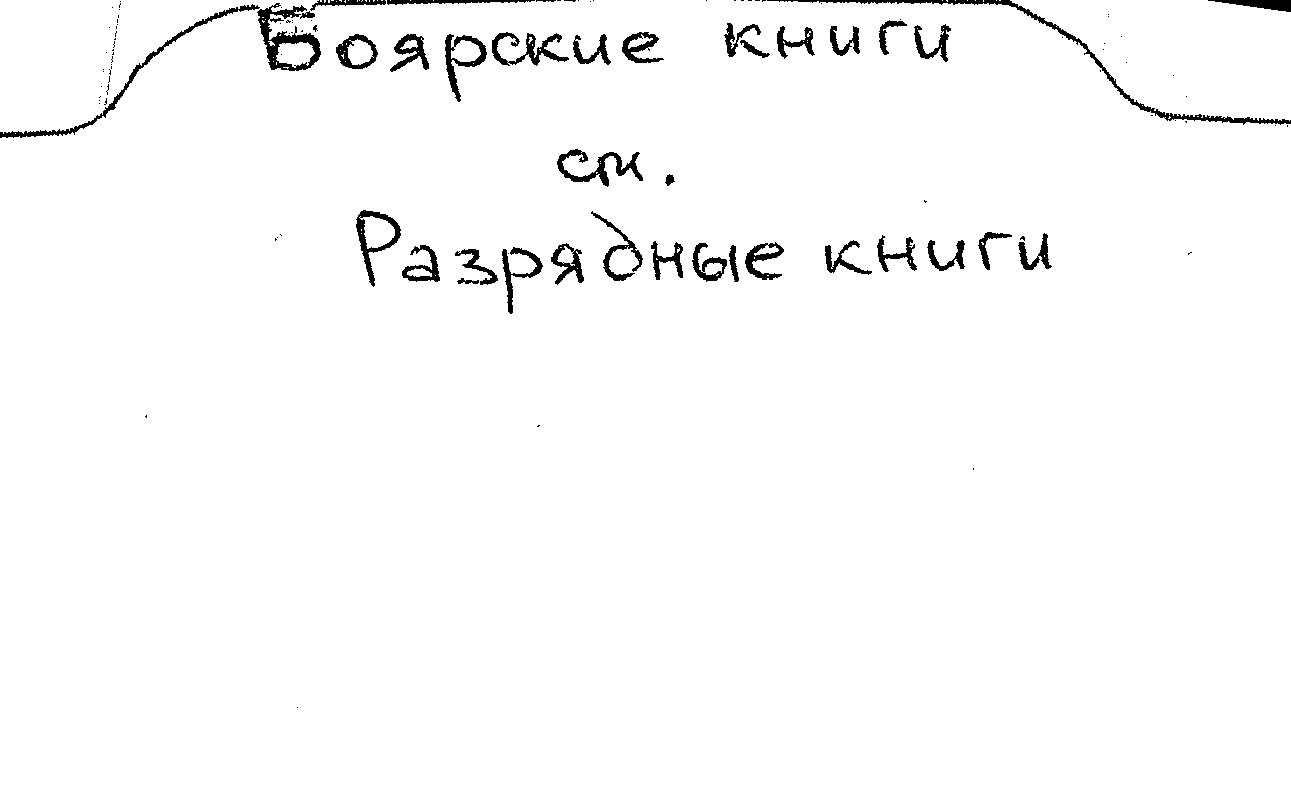 Боярские книги
см.
Разрядные книги